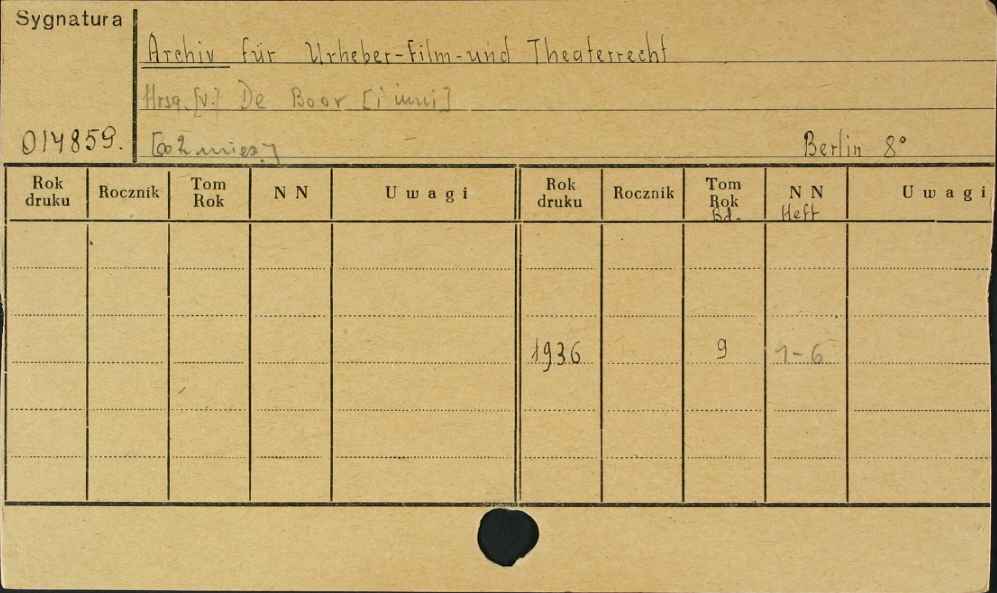 Sygnatura
Archiv für Urheber-Film-und Theaterrecht
Hrsg. [v.] De Boor [i inni]
014859.
[co 2 mies.]
Berlin 8°
Rok druku Rocznik Tom Rok N N Uwagi Rok druku Rocznik Tom Rok Bd. N N Heft Uwagi
1936 9 1-6